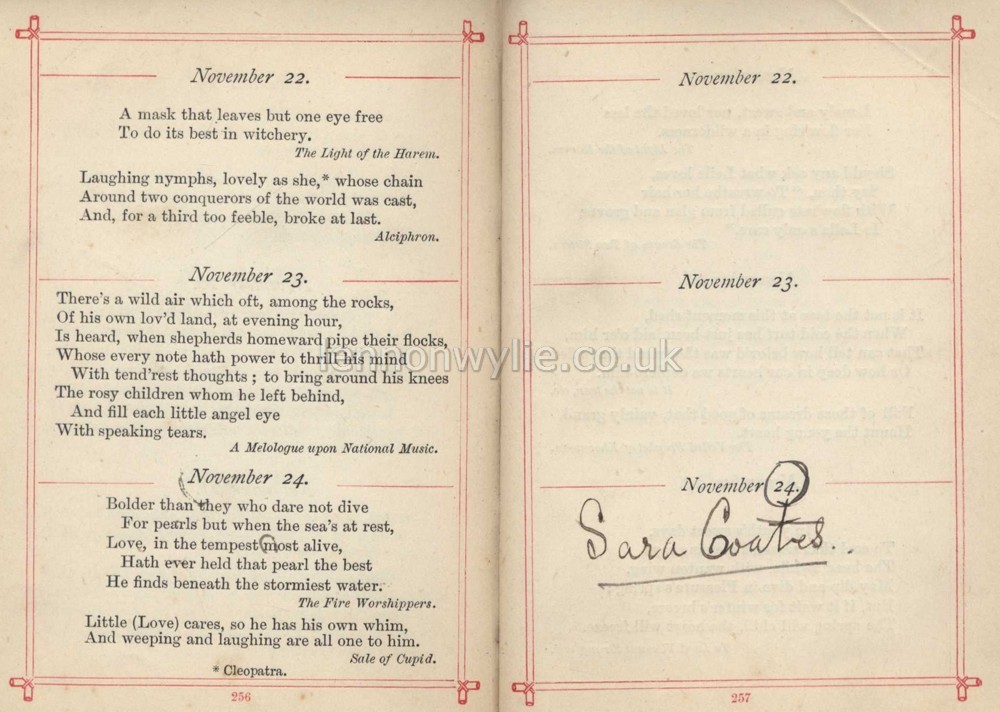 November 22.
A mask that leaves but one eye free
To do its best in witchery.
The Light of the Harem.
Laughing nymphs, lovely as she,* whose chain
Around two conquerors of the world was cast,
And, for a third too feeble, broke at last.
Alciphron.
November 23.
There's a wild air which oft, among the rocks,
Of his own lov'd land, at evening hour,
Is heard, when shepherds homeward pipe their flocks,
Whose every note hath power to thrill his mind
With tend'rest thoughts ; to bring around his knees
The rosy children whom he left behind,
And fill each little angel eye
With speaking tears.
A Melologue upon National Music.
November 24.
Bolder than they who dare not dive
For pearls but when the sea's at rest,
Love, in the tempest most alive,
Hath ever held that pearl the best
He finds beneath the stormiest water.
The Fire Worshippers.
Little (Love) cares, so he has his own whim,
And weeping and laughing are all one to him.
Sale of Cupid.
* Cleopatra.
256
November 22.
November 23.
November 24.
Sara Coates..
257
lennonwylie.co.uk